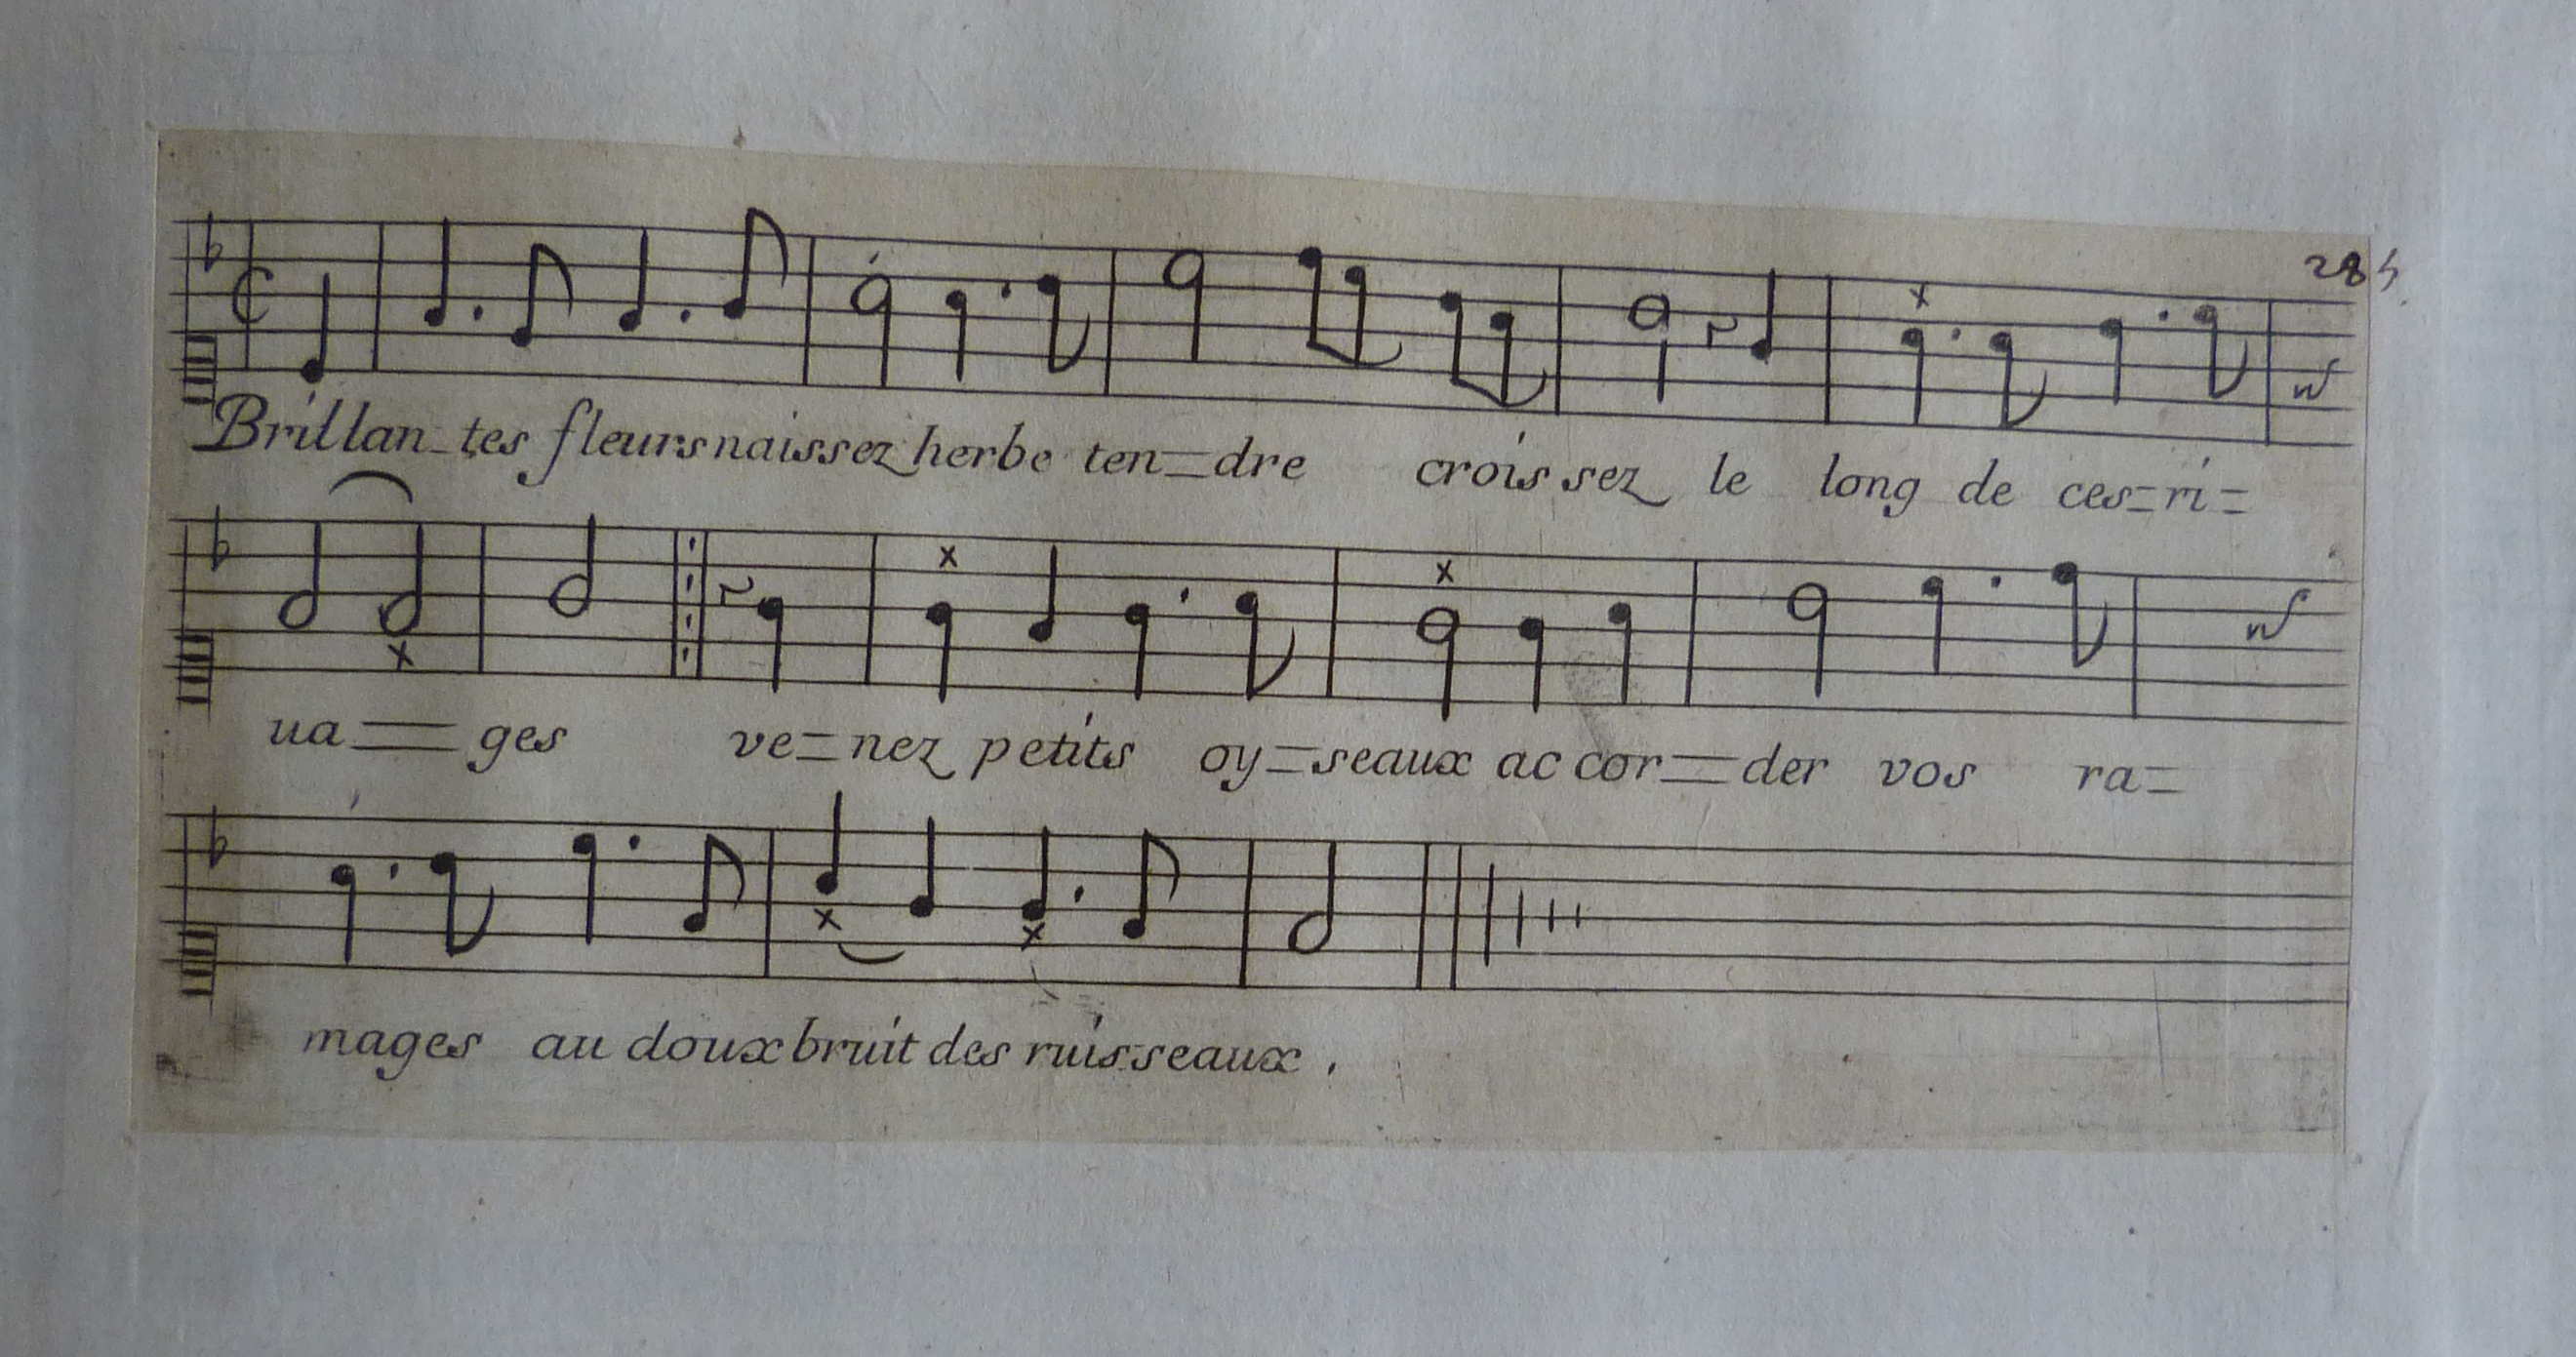 284
Brillan-tes fleurs naissez herbe ten=dre croissez le long de ces=ri=
ua=ges ve=nez petits oy=seaux accor=der vos ra=
mages au doux bruit des ruisseaux.